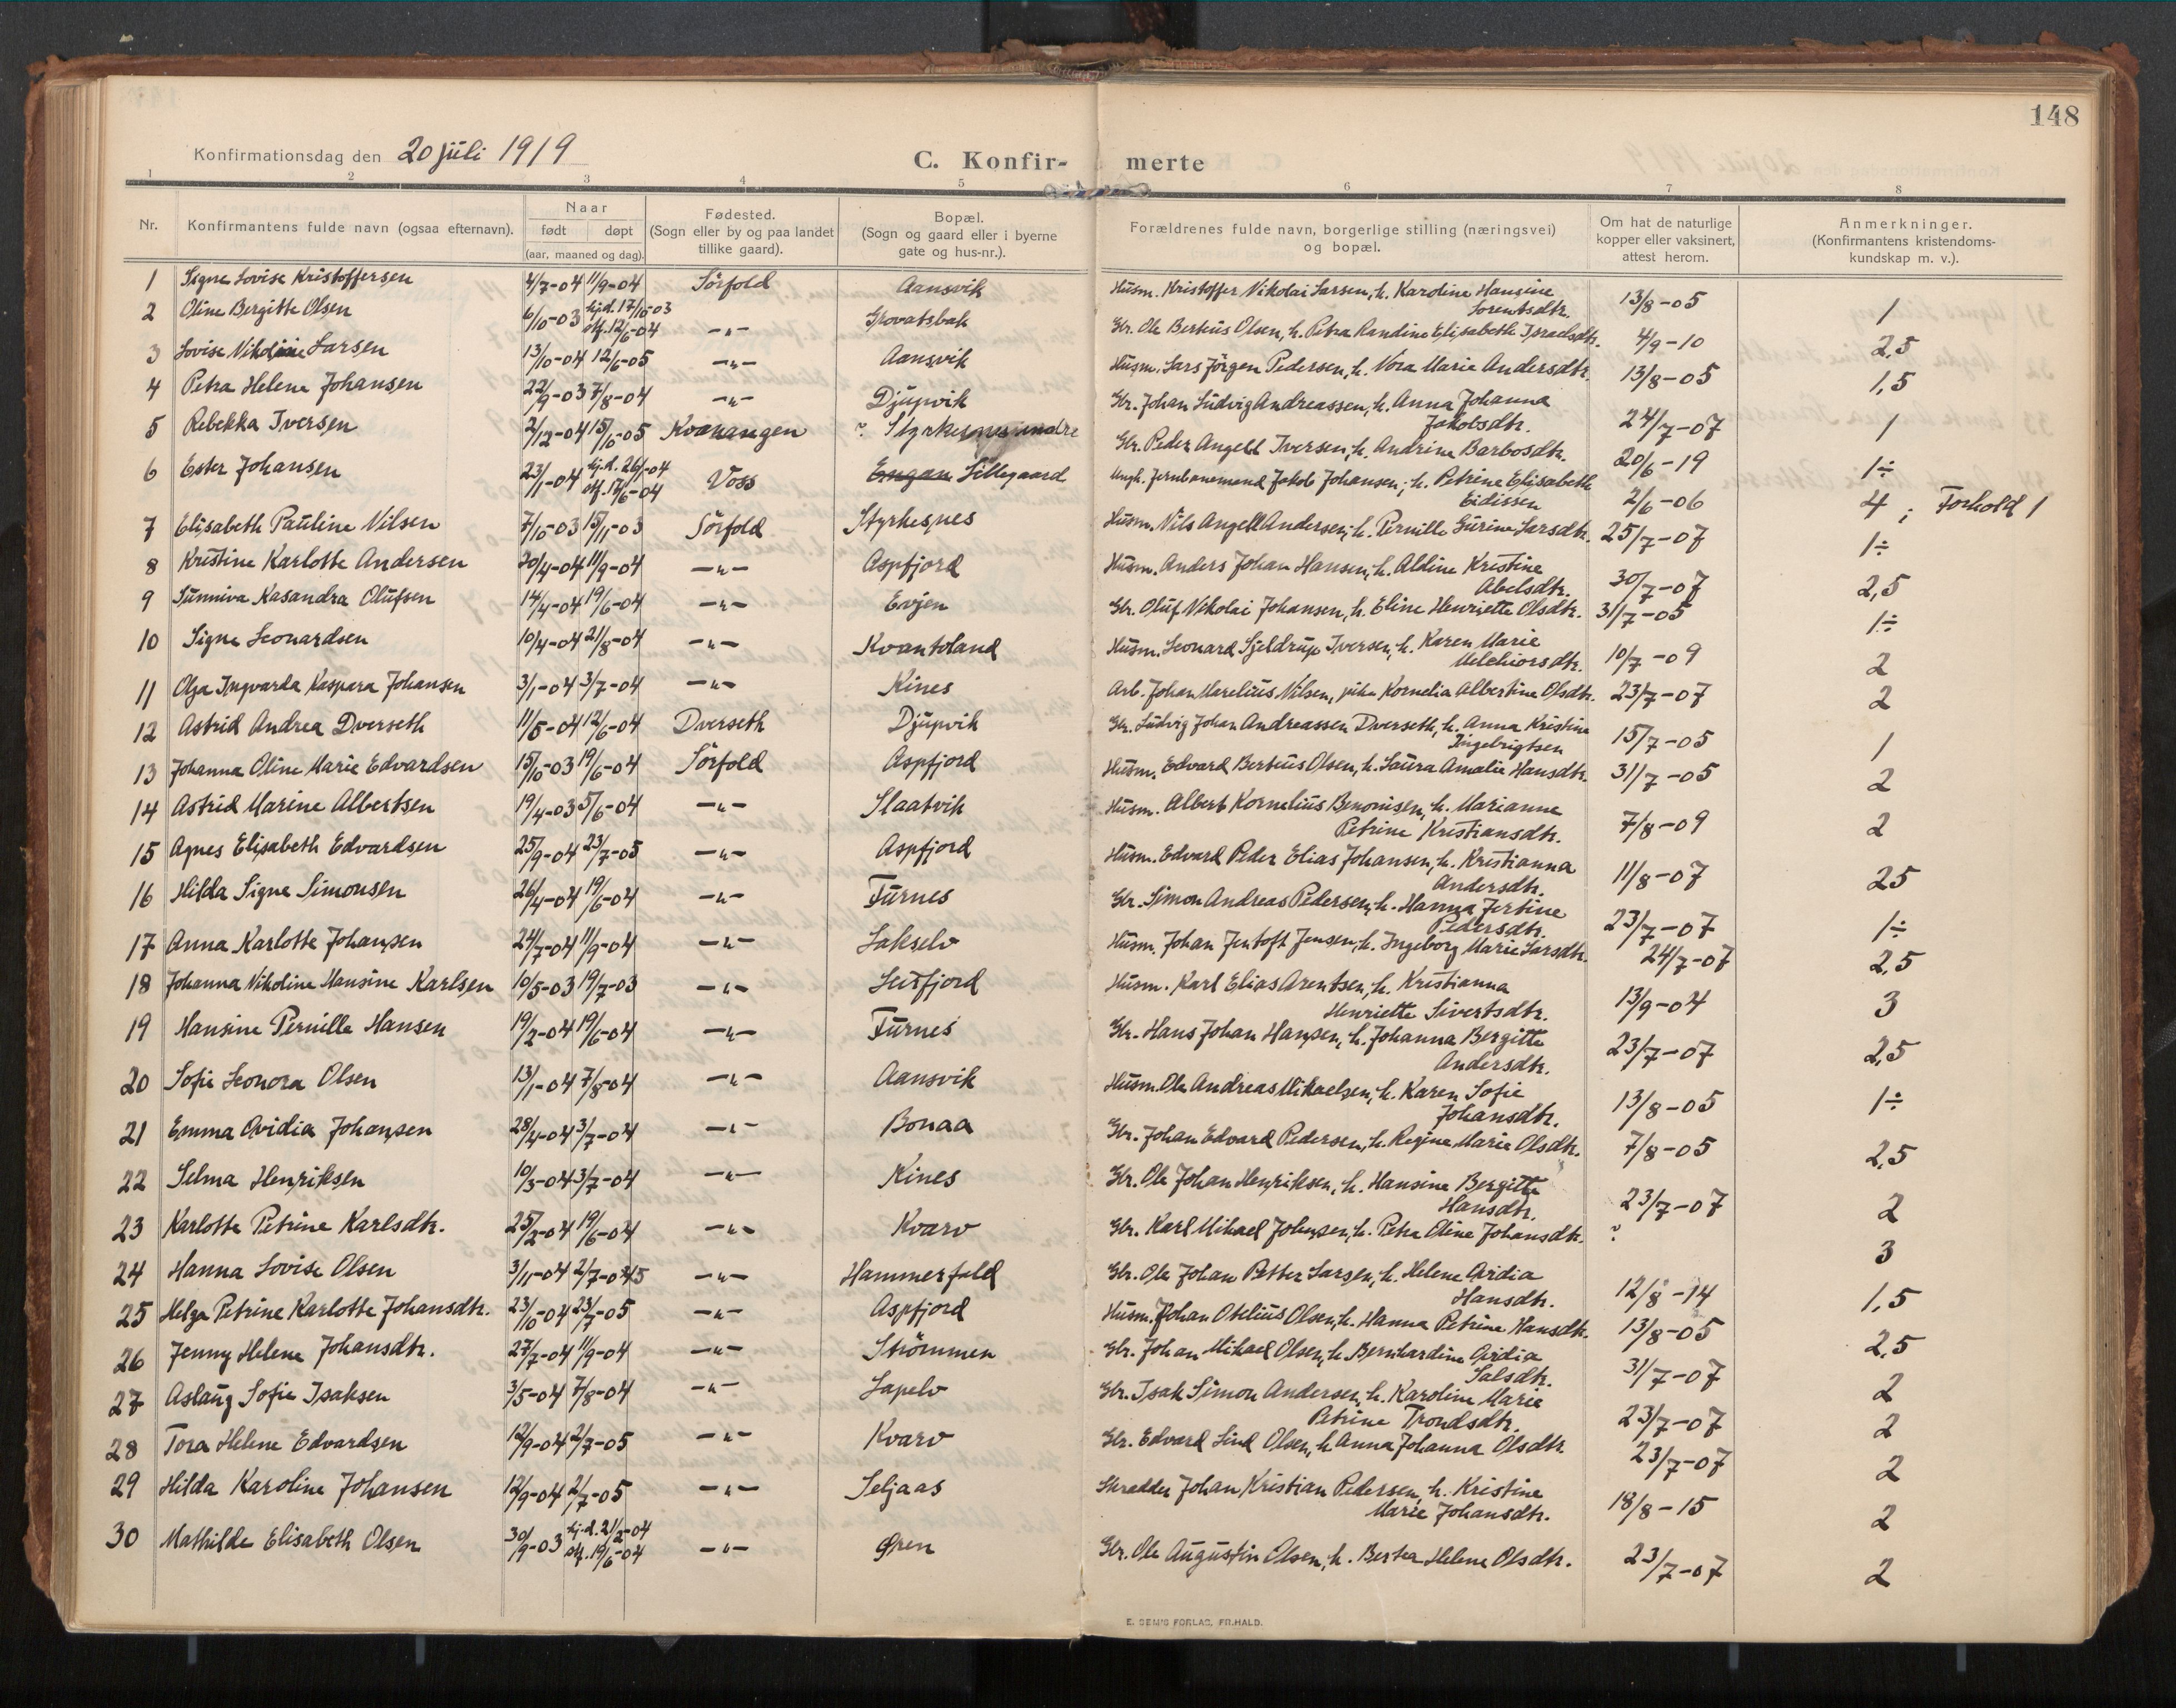 148
Konfirmationsdag den 20 juli 1919
C. Konfir- merte
1 2 3 4 5 6 7 8
Nr.
Konfirmantens fulde navn (ogsaa efternavn).
Naar
født døpt
(aar, maaned og dag).
Fødested.
(Sogn eller by og paa landet
tillike gaard).
Bopæl.
(Sogn og gaard eller i byerne
gate og hus-nr.).
Forældrenes fulde navn, borgerlige stilling (næringsvei)
og bopæl.
Om hat de naturlige
kopper eller vaksinert,
attest herom.
Anmerkninger.
(Konfirmantens kristendoms-
kundskap m. v.).
1 Signe Lovise Kristoffersen 4/7-04 11/9-04 Sörfold Aansvik Husm. Kristoffer Nikolai Larsen, h. Karoline Hansine
Lorentsdtr. 13/8-05 1
2 Oline Bergitte Olsen 6/10-03 hj.d. 17/10-03
stf. 12/6-04 -"- Grovatsbak Gbr. Ole Berteus Olsen, h. Petra Randine Elisabeth Israelsdtr. 4/9-10 2,5
3 Lovise Nikoline Larsen 13/10-04 12/6-05 -"- Aansvik Husm. Lars Jörgen Pedersen, h. Nora Marie Andersdtr. 13/8-05 1,5
4 Petra Helene Johansen 22/9-03 7/8-04 -"- Djupvik Gbr. Johan Ludvig Andreassen, h. Anna Johanna
Jakobsdtr. 24/7-07 1
5 Rebekka Iversen 2/12-04 15/6-05 Kvænangen ? Styrkesnes indre Gbr. Peder Angell Iversen, h. Andrine Barbosdtr. 20/6-19 1÷
6 Ester Johansen 23/1-04 hj.d. 26/1-04
stf. 17/6-04 Voss Engan Lillegaard Ungk. Jernbanemand Jakob Johansen, h. Petrine Elisabeth
Eidissen 2/6-06 4 ; Forhold 1
7 Elisabeth Pauline Nilsen 7/10-03 15/11-03 Sörfold Styrkesnes Husm. Nils Angell Andersen, h. Pernille Gurine Larsdtr. 25/7-07 1÷
8 Kristine Karlotte Andersen 20/4-04 11/9-04 -"- Aspfjord Husm. Anders Johan Hansen, h. Aldine Kristine
Abelsdtr. 30/7-07 2,5
9 Sunniva Kasandra Olufsen 14/4-04 19/6-04 -"- Evjen Gbr. Oluf Nikolai Johansen, h. Eline Henriette Olsdtr. 31/7-05 1÷
10 Signe Leonardsen 10/4-04 21/8-04 -"- Kvantoland Husm. Leonard Sjeldrup Iversen, h. Karen Marie
Melchiorsdtr. 10/7-09 2
11 Olga Ingvarda Kaspara Johansen 3/1-04 3/7-04 -"- Kines Arb. Johan Marelius Nilsen, pike Kornelia Albertine Olsdtr. 23/7-07 2
12 Astrid Andrea Dverseth 11/5-04 12/6-04 Dverseth Djupvik Gbr. Ludvig Johan Andreassen Dverseth, h. Anna Kristine
Ingebrigtsen 15/7-05 1
13 Johanna Oline Marie Edvardsen 15/10-03 19/6-04 Sörfold Aspfjord Husm. Edvard Berteus Olsen, h. Laura Amalie Hansdtr. 31/7-05 2
14 Astrid Marine Albertsen 19/4-03 5/6-04 -"- Slaatvik Husm. Albert Kornelius Benonisen, h. Marianne
Petrine Kristiansdtr. 7/8-09 2
15 Agnes Elisabeth Edvardsen 25/9-04 23/7-05 -"- Aspfjord Husm. Edvard Peder Elias Johansen, h. Kristianna
Andersdtr. 11/8-07 25
16 Hilda Signe Simonsen 26/4-04 19/6-04 -"- Furnes Gbr. Simon Andreas Pedersen, h. Hanna Jertine
Pedersdtr. 23/7-07 1÷
17 Anna Karlotte Johansen 24/7-04 11/9-04 -"- Lakselv Husm. Johan Jentoft Jensen, h. Ingeborg Marie Larsdtr. 24/7-07 2,5
18 Johanna Nikoline Hansine Karlsen 10/5-03 19/7-03 -"- Leifjord Husm. Karl Elias Arentsen, h. Kristianna
Henriette Sivertsdtr. 13/9-04 3
19 Hansine Pernille Hansen 19/2-04 19/6-04 -"- Furnes Gbr. Hans Johan Hansen, h. Johanna Bergitte
Andersdtr. 23/7-07 2,5
20 Sofie Leonora Olsen 13/1-04 7/8-04 -"- Aansvik Husm. Ole Andreas Mikaelsen, h. Karen Sofie
Johansdtr. 13/8-05 1÷
21 Emma Ovidia Johansen 28/4-04 3/7-04 -"- Bonaa Gbr. Johan Edvard Pedersen, h. Regine Marie Olsdtr. 7/8-05 2,5
22 Selma Henriksen 10/3-04 3/7-04 -"- Kines Gbr. Ole Johan Henriksen, h. Hansine Bergitte
Hansdtr. 23/7-07 2
23 Karlotte Petrine Karlsdtr. 25/2-04 19/6-04 -"- Kvarv Gbr. Karl Mikael Johansen, h. Petra Oline Johansdtr. ? 3
24 Hanna Lovise Olsen 3/11-04 2/7-05 -"- Hammerfald Gbr. Ole Johan Petter Larsen, h. Helene Ovidia
Hansdtr. 12/8-14 1,5
25 Helga Petrine Karlotte Johansdtr. 23/10-04 23/7-05 -"- Aspfjord Husm. Johan Otelius Olsen, h. Hanna Petrine Hansdtr. 13/8-05 2,5
26 Jenny Helene Johansdtr. 27/7-04 11/9-04 -"- Strömmen Gbr. Johan Mikael Olsen, h. Bernhardine Ovidia
Salsdtr. 31/7-07 2
27 Aslaug Sofie Isaksen 3/5-04 7/8-04 -"- Lapelv Gbr. Isak Simon Andersen, h. Karoline Marie
Petrine Trondsdtr. 23/7-07 2
28 Tora Helene Edvardsen 12/9-04 2/7-05 -"- Kvarv Gbr. Edvard Lind Olsen, h. Anna Johanna Olsdtr. 23/7-07 2
29 Hilda Karoline Johansen 12/9-04 2/7-05 -"- Seljaas Skrædder Johan Kristian Pedersen, h. Kristine
Marie Johansdtr. 18/8-15 2
30 Mathilde Elisabeth Olsen 30/9-03 hj.d. 21/2-04
stf. 19/6-04 -"- Gren Gbr. Ole Augustin Olsen, h. Berta Helene Olsdtr. 23/7-07 2
E. SEM'S FORLAG, FR.HALD.